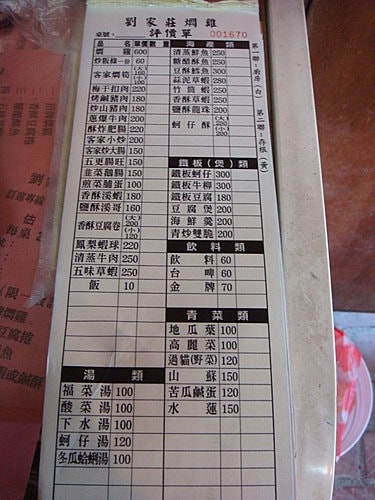 劉家莊燜雞
評價單
桌號: 001670
品名 單價 數量
燜雞 600
炒飯條一份 60
客家燜筍 (大)160 (小)100
梅干扣肉 220
烤鹹豬肉 180
炒山豬肉 180
蔥爆牛肉 200
酥炸肥腸 220
客家小炒 200
客家炒大腸 150
五更腸旺 150
韭菜鵝腸 150
煎菜脯蛋 100
香酥溪蝦 180
鹽酥溪哥 160
香酥豆腐卷 (大)200 (小)120
鳳梨蝦球 220
清蒸牛肉 250
五味草蝦 250
飯 10
湯類
福菜湯 100
酸菜湯 100
下水湯 100
蚵仔湯 120
冬瓜蛤蜊湯 100
海產類
清蒸鮮魚 250
糖醋酥魚 250
豆酥鱈魚 300
蒜泥草蝦 280
竹筒蝦 250
香酥草蝦 250
鹽酥龍珠 200
蚵仔酥 (大)200
鐵板(煲)類
鐵板蚵仔 300
鐵板牛柳 300
鐵板豆腐 180
豆腐煲 200
海鮮羹 200
青炒雙脆 200
飲料類
飲料 60
台啤 60
金牌 70
青菜類
地瓜葉 100
高麗菜 100
過貓(野菜) 120
山蘇 150
苦瓜鹹蛋 120
水蓮 150
第一聯:廚房(白)
第二聯:存根(黃)